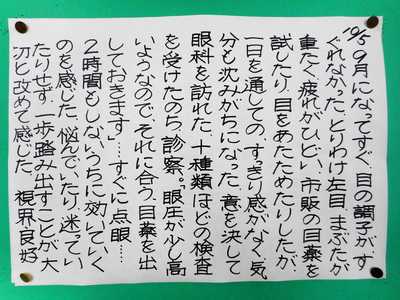 10/5
9月になってすぐ、目の調子がす
ぐれなかった。とりわけ左目、まぶたが
重たく疲れがひどい。市販の目薬を
試したり、目をあたためたりしたが、
一日を通しての、すっきり感がなく気
分も沈みがちになった。意を決して
眼科を訪れた。十種類ほどの検査
を受けたのち、診察。「眼圧が少し高
いようなので、それに合う目薬を出
しておきます」……すぐに点眼……
2時間もしないうちに効いていく
のを感じた。悩んでいたり、迷ってい
たりせず、一歩踏み出すことが大
切と改めて感じた。 視界良好